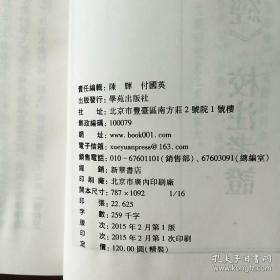 責任編輯：陳　輝　付國英
出版發行：學苑出版社
社　　址：北京市豐臺區南方莊2號院1號樓
郵政編碼：100079
網　　址：www.book001.com
電子信箱：xueyuanpress@163.com
銷售電話：010-67601101(銷售部)、67603091(總編室)
經　　銷：新華書店
印 刷 廠：北京市廣內印刷廠
開本尺寸：787×1092　1/16
印　　張：22.625
字　　數：259千字
版　　次：2015年2月第1版
印　　次：2015年2月第1次印刷
定　　價：120.00圓(精裝)
經》